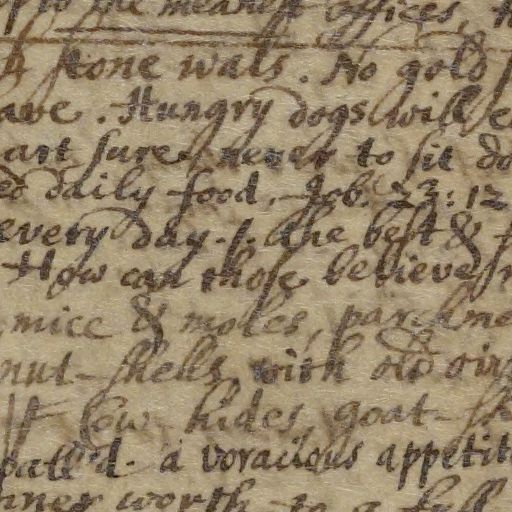 to the meanest offices,
stone wals. No gold
ave. Hungry dogs will
art sure never to sit do
daily food. Job. 23: 12
every day. 1. the best &
How can those believe
mice & moles, parchme
nut-shells with old
few hides, goat-
pall'd. a voracious appetit
nner worth to a full